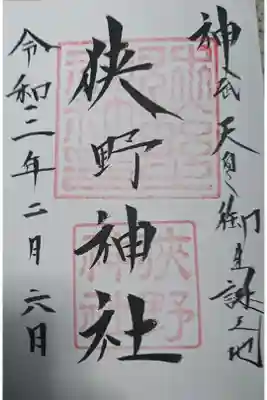 神武天皇御生誕之地
狭野神社
令和二年二月六日
狭野神社